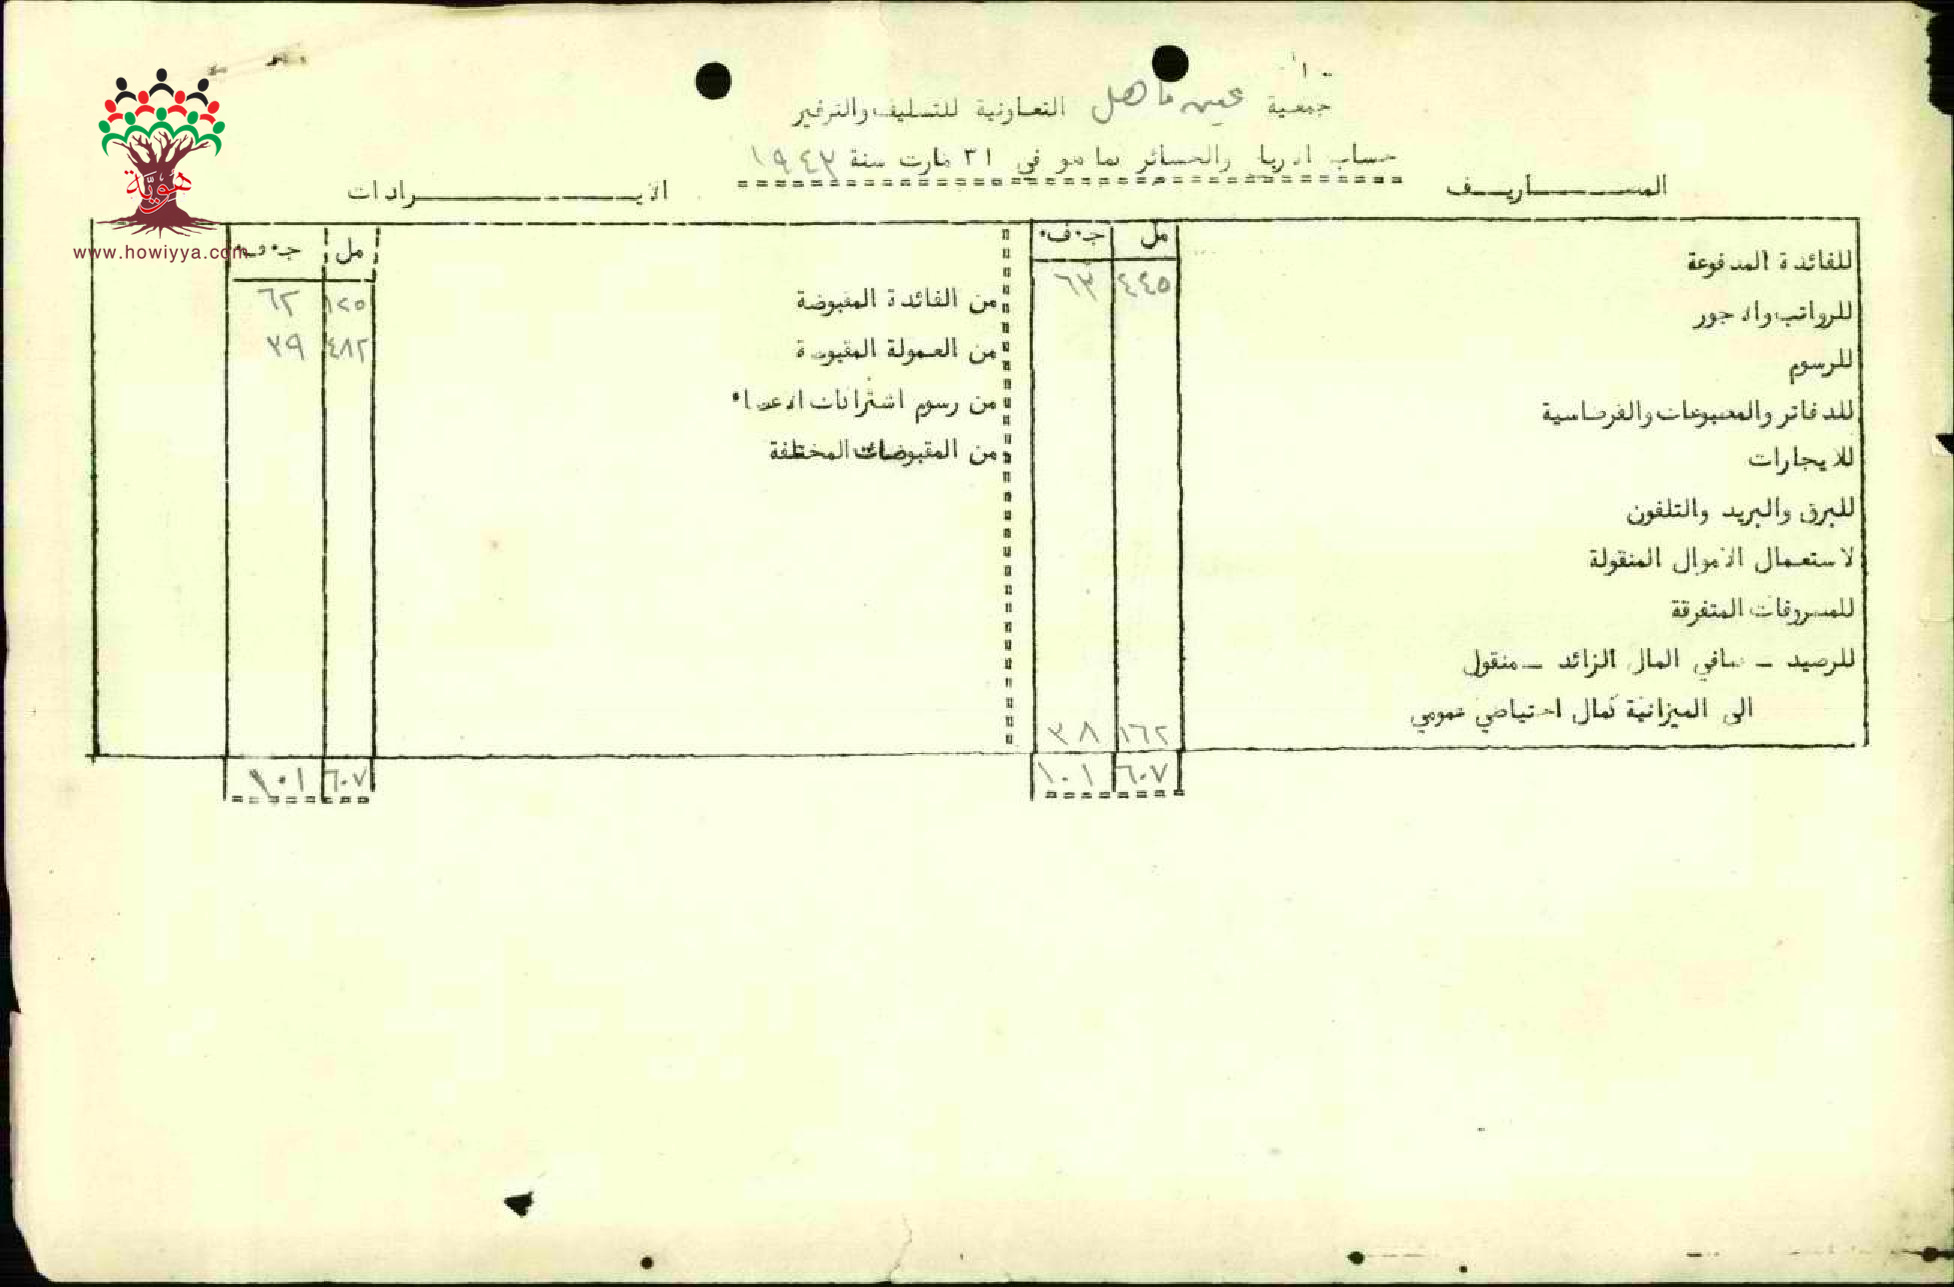 هويّة
www.howiyya.com
جمعية عين ماهل التعاونية للتسليف والتوفير
حساب الارباح والخسائر كما هو في ٣١ مارت سنة ١٩٤٣
المصـــــــاريــف
الايـــــــــــــــــرادات
مل ج٠ف٠
للفائدة المدفوعة ٤٤٥ ٦٣
للرواتب والاجور
للرسوم
للدفاتر والمطبوعات والقرطاسية
للايجارات
للبرق والبريد والتلفون
لاستعمال الاموال المنقولة
للمصروفات المتفرقة
للرصيد ــ صافي المال الزائد ــ منقول
الى الميزانية كمال احتياطي عمومي ١٦٢ ٣٨
٦٠٧ ١٠١
مل ج٠ف٠
من الفائدة المقبوضة ١٢٥ ٦٢
من العمولة المقبوضة ٤٨٢ ٣٩
من رسوم اشتراكات الاعضاء
من المقبوضات المختلفة
٦٠٧ ١٠١